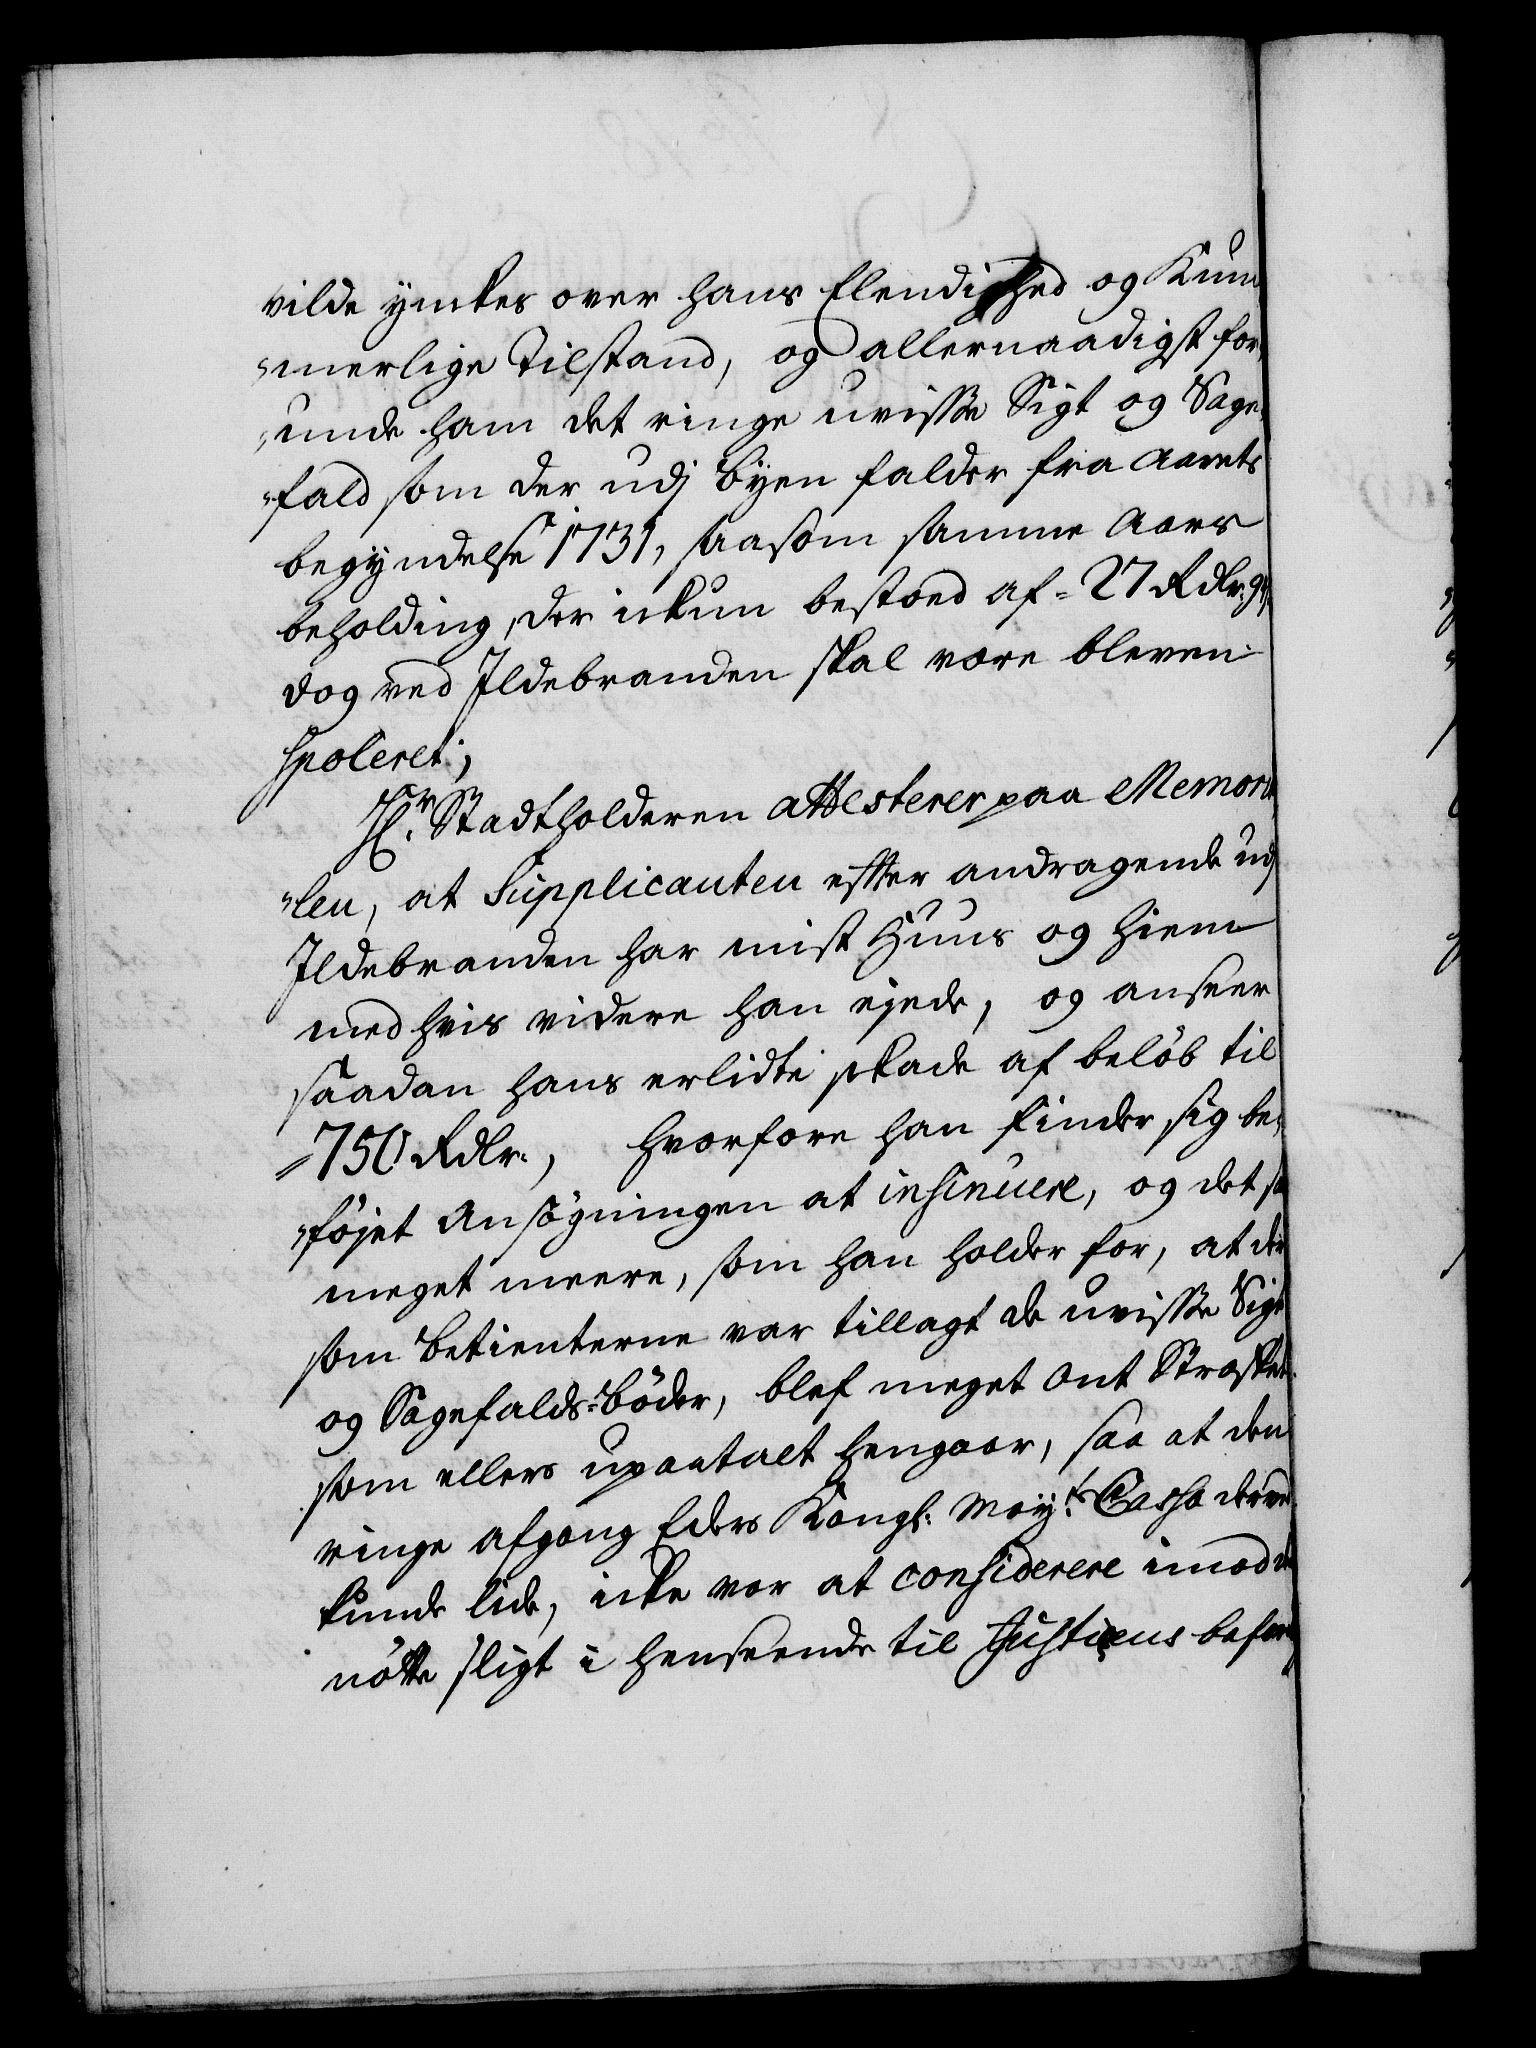 vilde ynkes over hans Elendighed og Kum
„merlige Tilstand, og allernaadigst for„
„unde ham det ringe uvisse Sigt og Sage„
„fald som der udj Byen falder fra Aarets
begyndelse 1731, saasom samme Aars
beholding, der ickun bestoed af 27 Rdlr:
dog ved Ildebranden skal være bleven
spoleret;
Hr. Stadtholderen attesterer paa Memoria
„len, at Supplicanten efter andragende udj
Ildebranden har mist Huus og Hiem
med hvis videre han ejede, og anseer
saadan hans erlidte skade af beløb til
750 Rdlr., hvorfore han finder sig be„
„føjet Ansøgningen at insinuere, og det saa
meget meere, som han holder for, at der
som Betienterne var tillagt de uvisse Sigt
og Sagefalds=Bøder, blef meget ont Straffet
som ellers upaatalt hengaar, saa at den
ringe afgang Eders Kongl: May:ts Cassa derved
kunde lide, icke var at considerere imod de
nøtte sligt i henseende til Justiens befor